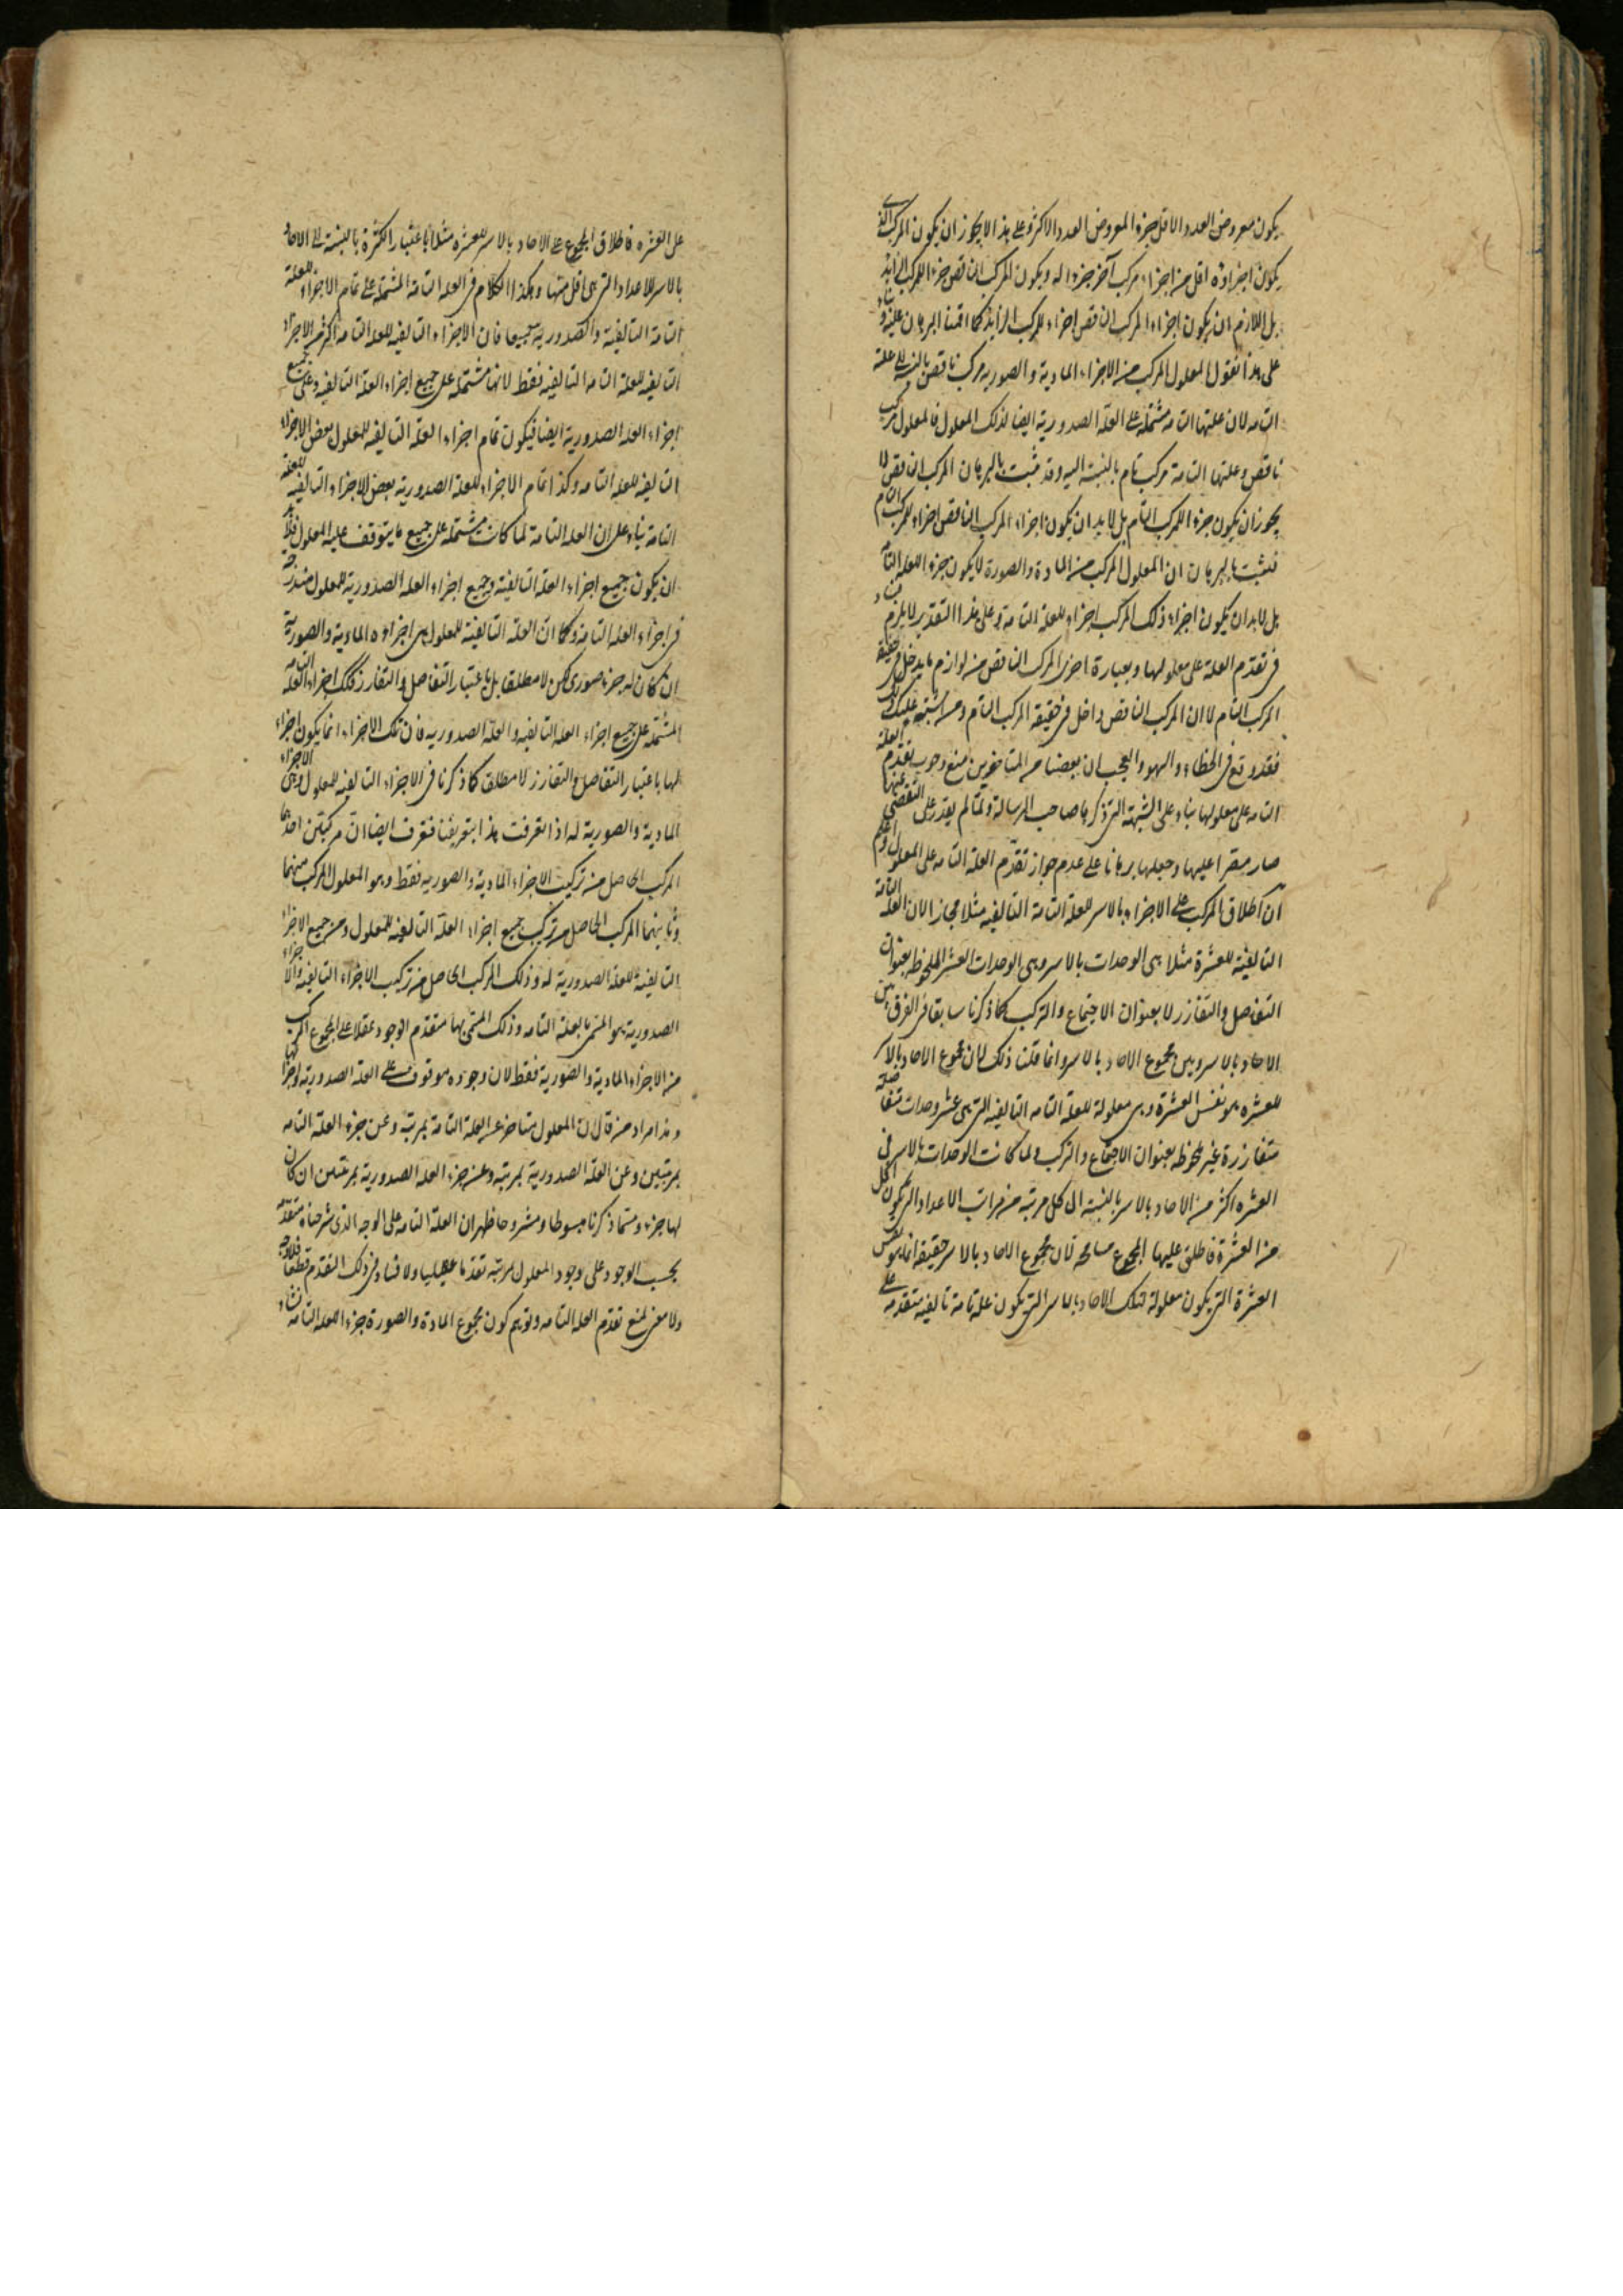 يكون معروض العدد الاقل جزء المعروض العدد الاكثر وعلى هذا لا يجوز ان يكون المركب الذى
يكون اجزاؤه اقل من اجزاء مركب آخر جزء اله ويكون المركب الناقص جزء اللمركب الزايد
بل اللازم ان يكون اجزاء المركب الناقص اجزاء للمركب الزايد كما اقمنا البرهان عليه وبناء
على هذا نقول المعلول المركب من الاجزاء المادية والصورية مركب ناقص بالنسبة الى علته
التامه لان علتها التامه مشتملة على العلة الصدورية ايضا لذلك المعلول فالمعلول مركب
ناقص وعلتها التامة مركب تام بالنسبة اليه وقد ثبت بالبرهان المركب الناقص لا
يجوز ان يكون جزء اللمركب التام بل لا بد ان يكون اجزاء المركب الناقص اجزاء للمركب التام
فثبت بالبرهان ان المعلول المركب من المادة والصورة لا يكون جزء اللعلة التامه
بل لا بد ان يكون اجزاء ذلك المركب اجزاء للعلة التامة وعلى هذا التقدير لا يلزم فساد
فى تقدم العلة على معلولها وبعبارة اخرى المركب الناقص من لوازم ما يدخل فى حقيقة
المركب التام لا ان المركب الناقص داخل فى حقيقة المركب التام ومن اشتبه عليك ذلك
فقد وقع فى الخطاء والسهو والعجب ان بعضا من المتاخرين منع وجوب تقدم العلة
التامه على معلولها بناء على الشبهة التى ذكرها صاحب الرسالة ولما لم يقدر على التفصى عنها
صار مصرا عليها وجعلها برهانا على عدم جواز تقدم العلة التامه على المعلول واعلم
ان اطلاق المركب على الاجزاء بالاسر للعلة التامة التاليفيه مثلا مجاز الان العلة التامة
التاليفية للعشرة مثلا هى الوحدات بالاسر وهى الوحدات العشر الملحوظه بعنوان
التفاصل والتفارز لا بعنوان الاجتماع والتركب كما ذكرنا سابقا فى الفرق بين
الاحاد بالاسر وبين مجموع الاحاد بالاسر وانما قلنا ذلك لان مجموع الاحاد بالاسر
للعشره هو نفس العشرة وهى معلولة للعلة التامه التاليفيه التى هى عشر وحدات متفاصلة
متفارزة غير ملحوظه بعنوان الاجتماع والتركب ولما كانت الوحدات بالاسر فى
العشره اكثر من الاحاد بالاسر بالنسبة الى كل مرتبة من مراتب الاعداد التى يكون اقل
من العشرة فاطلق عليها المجموع مسامحه لان مجموع الاحاد بالاسر حقيقة انما هو نفس
العشرة التى يكون معلولة لتلك الاحاد بالاسر التى يكون علة تامة تاليفيه متقدمه على
على العشره فاطلاق المجموع على الاحاد بالاسر للعشره مثلا باعتبار الكثرة بالنسبة الى الاحاد
بالاسر للاعداد التى هى اقل منها وهكذا الكلام فى العلة التامة المشتملة على تمام الاجزاء للعلة
التامة التاليفية والصدورية جميعا فان الاجزاء التاليفيه للعلة التامه اكثر من الاجزاء
التاليفيه للعلة التامه التاليفيه فقط لانها مشتملة على جميع اجزاء العلة التاليفيه وعلى جميع
اجزاء العلة الصدورية ايضا فيكون تمام اجزاء العلة التاليفيه للمعلول بعض الاجزاء
التاليفيه للعلة التامه وكذا تمام الاجزاء للعلة الصدورية بعض الاجزاء التاليفيه للعلة
التامة بناء على ان العلة التامة لما كانت مشتملة على جميع ما يتوقف عليه المعلول فلابد
ان يكون جميع اجزاء العلة التاليفية وجميع اجزاء العلة الصدورية للمعلول مندرجة
فى اجزاء العلة التامة وكما ان العلة التاليفية للمعلول هى اجزاؤه المادية والصورية
ان كان له جزء صورى لكن لا مطلقا بل باعتبار التفاصل والتفارز كذلك اجزاء العلة التامه
المشتملة على جميع اجزاء العلة التاليفيه والعلة الصدوريه فان تلك الاجزاء انما يكون اجزاء
لها باعتبار التفاصل والتفارز لا مطلق كما ذكرنا فى الاجزاء التاليفيه للمعلول وهى الاجزاء
المادية والصورية له اذا تعرفت هذا بتعريفنا فتعرف ايضا ان مركبتين احدهما
المركب الحاصل من تركيب الاجزاء المادية والصوريه فقط وهو المعلول المركب منهما
وثانيهما المركب الحاصل من تركيب جميع اجزاء العلة التاليفية للمعلول ومن جميع الاجزاء
التاليفية للعلة الصدورية له وذلك المركب الحاصل من تركيب الاجزاء التاليفية والاجزاء
الصدورية هو المسمى بالعلة التامه وذلك المسمى بها متقدم الوجود عقلا على المجموع المركب
من الاجزاء المادية والصورية فقط لان وجوده موقوف على العلة الصدورية واجزائها
وهذا مراد من قال ان المعلول متاخر عن العلة التامة بمرتبة وعن جزء العلة التامه
بمرتبتين وعن العلة الصدورية بمرتبة وعن جزء العلة الصدورية بمرتبتين ان كان
لها جزء ومما ذكرنا مبسوطا ومشروحا ظهر ان العلة التامه على الوجه الذى شرحناه متقدمة
بحسب الوجود على وجود المعلول بمرتبة تقدما عقليا ولا فساد فى ذلك التقدم قطعا فلا وجه
ولا معنى لمنع تقدم العلة التامه وتوهم كون مجموع المادة والصورة جزء اللعلة التامه